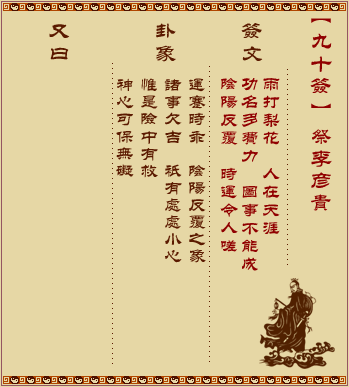 【九十簽】 祭李彥貴
簽文
雨打梨花 人在天涯
功名多費力 圖事不能成
陰陽反覆 時運令人嗟
卦象
運蹇時乖 陰陽反覆之象
諸事欠吉 祇有處處小心
惟是險中有救
神心可保無礙
又曰